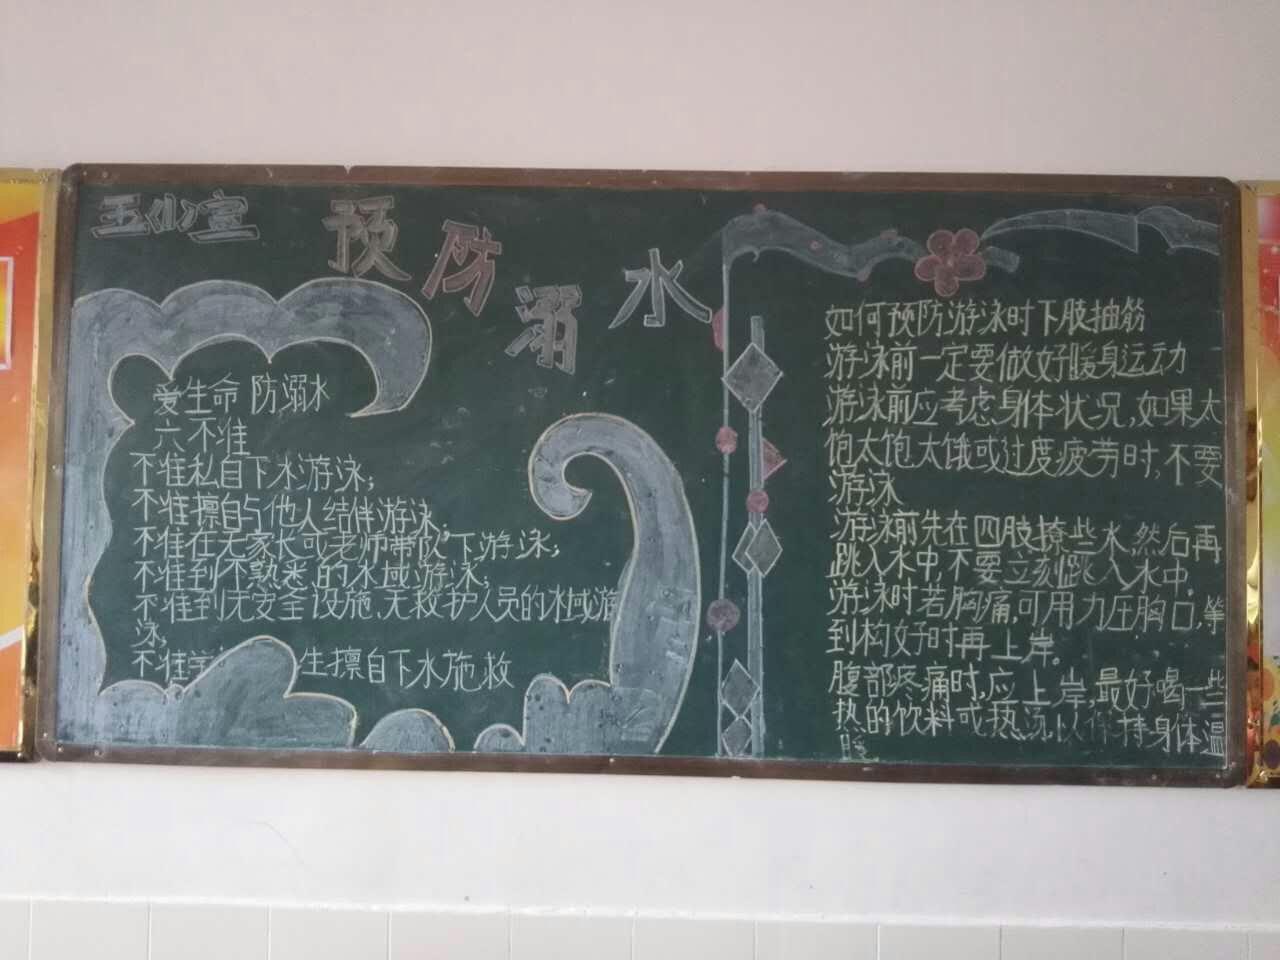 预防溺水
爱生命 防溺水
六不准
不准私自下水游泳;
不准擅自与他人结伴游泳;
不准在无家长或老师带队下游泳;
不准到不熟悉的水域游泳;
不准到无安全设施、无救护人员的水域游
泳;
不准学 生擅自下水施救
如何预防游泳时下肢抽筋
游泳前一定要做好暖身运动
游泳前应考虑身体状况,如果太
饱太饱太饿或过度疲劳时,不要
游泳
游泳前先在四肢撩些水,然后再
跳入水中,不要立刻跳入水中.
游泳时若胸痛,可用力压胸口,等
到构好时再上岸。
腹部疼痛时,应上岸,最好喝一些
热的饮料或热汤以保持身体温
暖